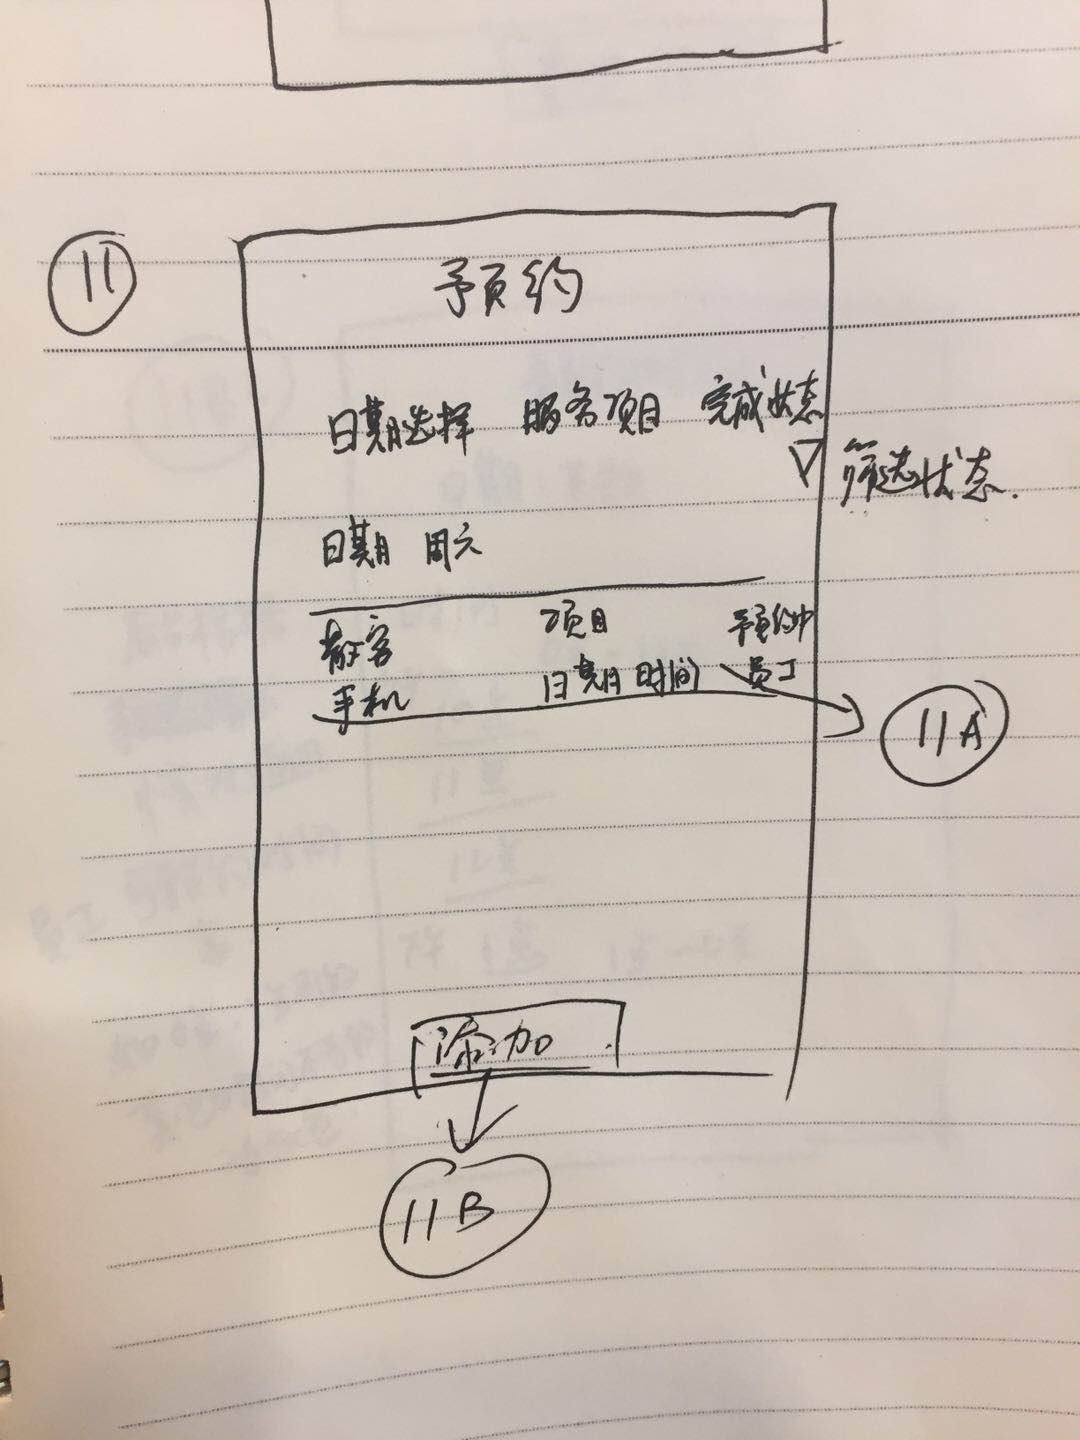 11
预约
日期选择 服务项目 完成状态
筛选状态.
日期 周六
散客 项目 预约中
手机 日期 时间 员工
11A
添加
11B